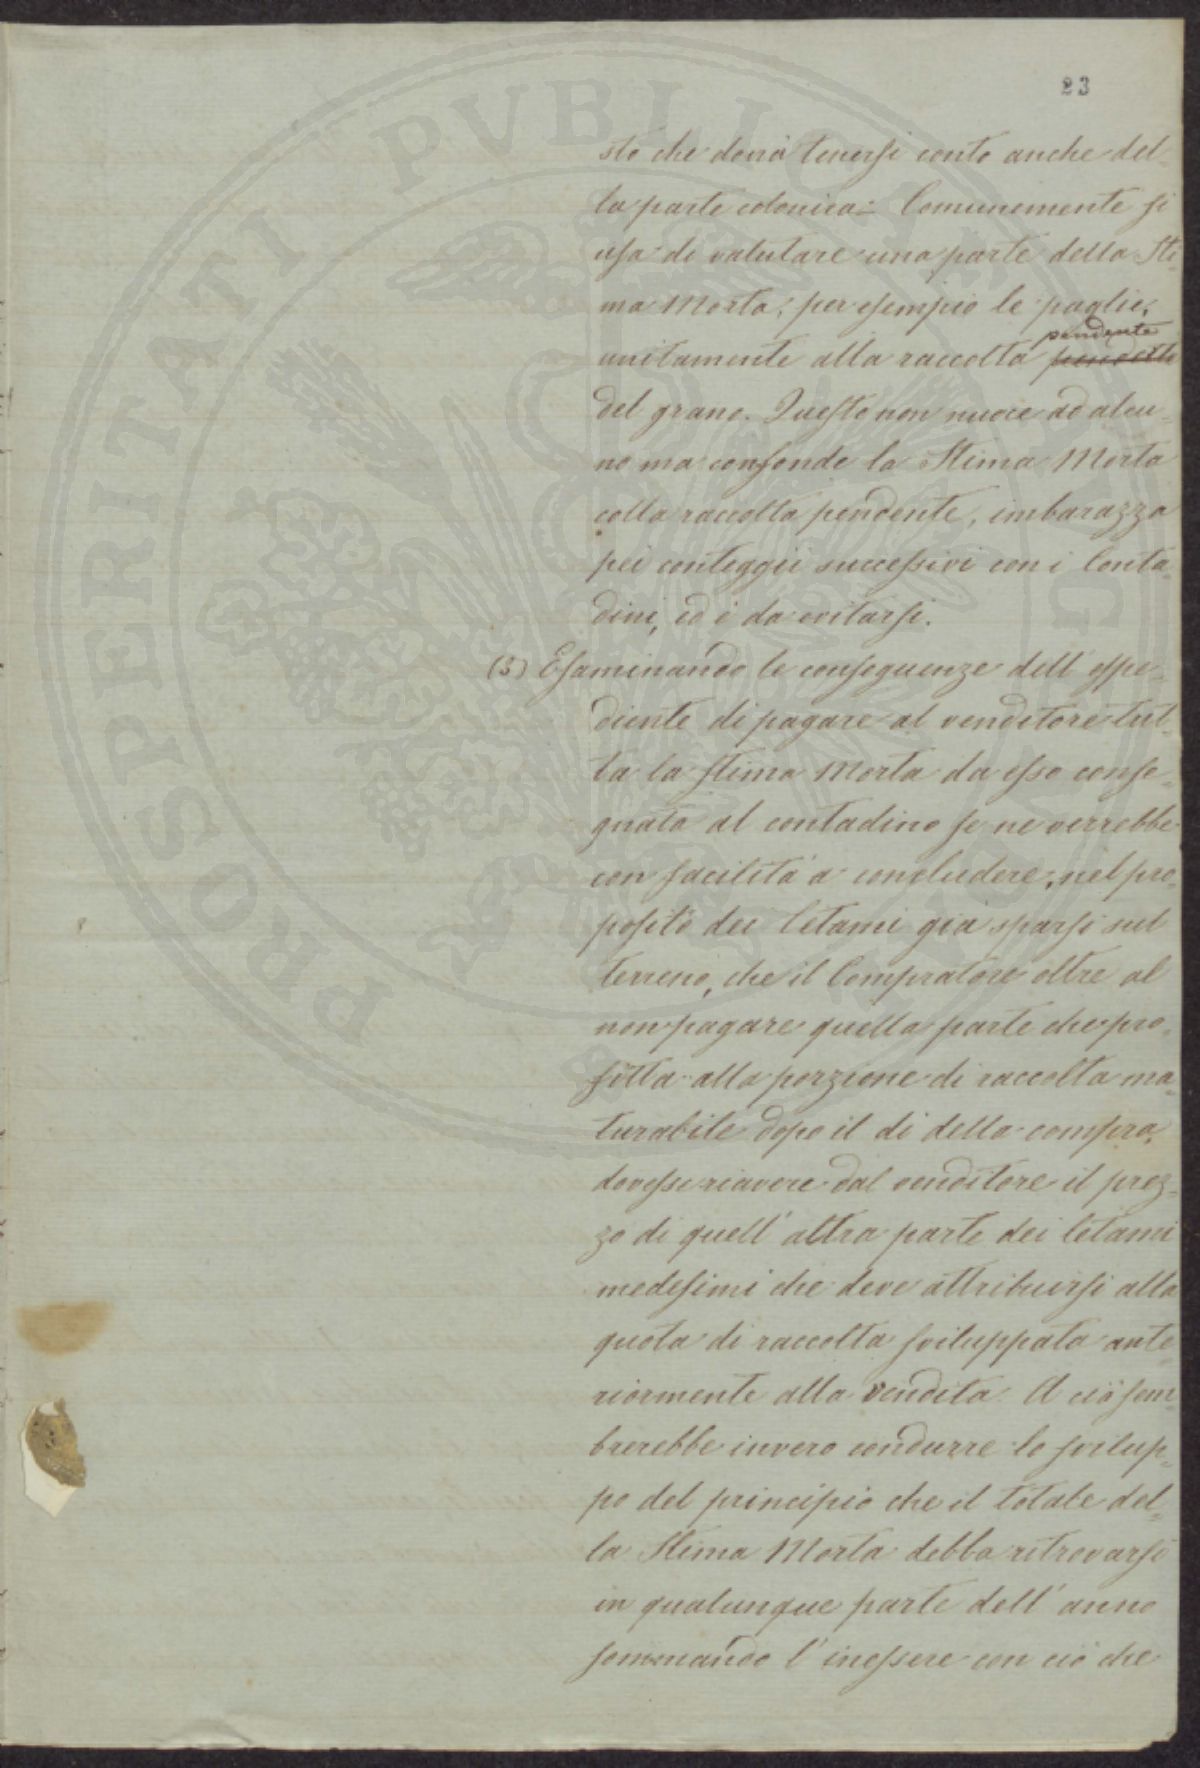 23
sto che dovrà tenersi conto anche del-
la parte colonica. Comunemente si
usa di valutare una parte della Sti-
ma Morta, per esempio le paglie,
pendente
unitamente alla raccolta
del grano. Questo non nuoce ad alcu-
no ma confonde la Stima Morta
colla raccolta pendente, imbarazza
pei conteggii successivi con i Conta-
dini, ed è da evitarsi.
(5) Esaminando le conseguenze dell' espe-
diente di pagare al venditore tut-
ta la stima Morta da esso conse-
gnata al contadino se ne verrebbe
con facilità a concludere, nel pro-
posito dei letami già sparsi sul
terreno, che il Compratore oltre al
non pagare quella parte che pro-
fitta alla porzione di raccolta ma-
turabile dopo il dì della compra,
dovesse riavere dal venditore il prez-
zo di quell' altra parte dei letami
medesimi che deve attribuirsi alla
quota di raccolta sviluppata ante-
riormente alla vendita. A ciò sem-
brerebbe invero condurre lo svilup-
po del principio che il totale del-
la Stima Morta debba ritrovarsi
in qualunque parte dell' anno
sommando l' inessere con ciò che
PROSPERITATI PVBLICAE